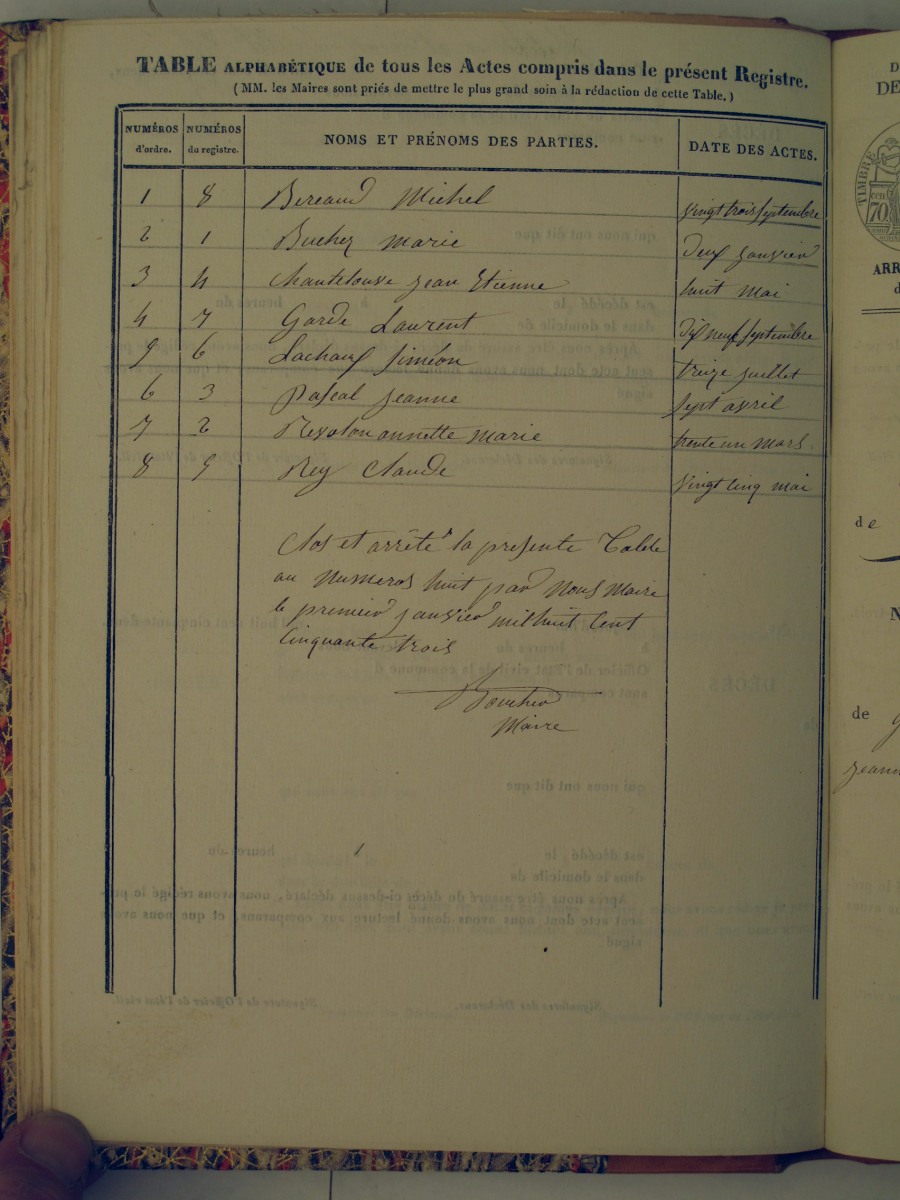 TABLE ALPHABÉTIQUE de tous les Actes compris dans le présent Registre.
(MM. les Maires sont priés de mettre le plus grand soin à la rédaction de cette Table.)
NUMÉROS d'ordre. NUMÉROS du registre. NOMS ET PRÉNOMS DES PARTIES. DATE DES ACTES.
1 8 Bereaud Michel vingt trois septembre
2 1 Buchez marie deux janvier
3 4 Chantelouve jean Etienne huit mai
4 7 Garde Laurent dix neuf septembre
5 6 Lachaux siméon treize juillet
6 3 Pascal jeanne sept avril
7 2 annette marie trente un mars.
8 5 Rey Claude vingt cinq mai
Clos et arrêté la presente Table
au numeros huit par Nous Maire
le premier janvier mil huit cent
cinquante trois
Maire
TIMBRE
70
ARR
de
de
jeann